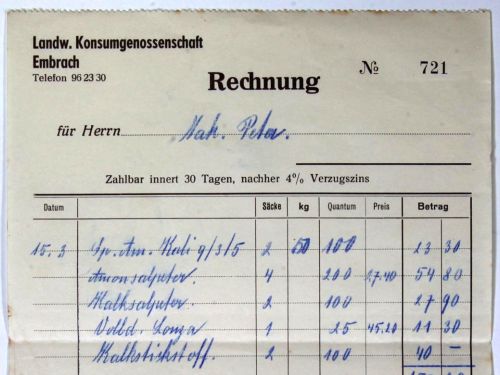 Landw. Konsumgenossenschaft
Embrach
Telefon 96 23 30
Rechnung
№ 721
für Herrn Mah. Peter.
Zahlbar innert 30 Tagen, nachher 4% Verzugszins
Datum Säcke kg Quantum Preis Betrag
15.3 Sp. Am. Kali 9/3/5 2 50 100 23 30
Amonsalpeter 4 200 27.40 54 80
Kalksalpeter 2 100 27 90
Volld. Lonza 1 25 45.20 11 30
Kalkstickstoff. 2 100 40 —